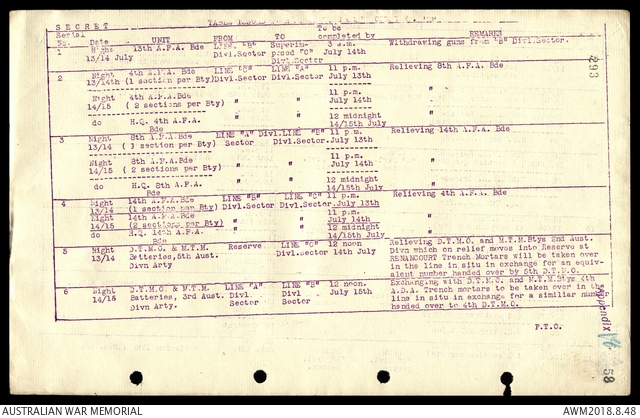 SECRET
Serial No. Date UNIT FROM TO To be completed by REMARKS
1 Night 13/14 July 13th A.F.A. Bde LINE "B" Divl.Sector Superimposed "C" Divl.Sector 3 a.m. July 14th Withdrawing guns from "B" Divl.Sector.
2 Night 4th A.F.A. Bde LINE "C" LINE "A" 11 p.m. Relieving 8th A.F.A. Bde
13/14th (1 section per Bty) Divl.Sector Divl.Sector July 13th
Night 4th A.F.A. Bde " " 11 p.m.
14/15 ( 2 sections per Bty) July 14th "
do H.Q. 4th A.F.A. Bde " " 12 midnight 14/15th July "
3 Night 8th A.F.A.Bde LINE "A" Divl. LINE "B" 11 p.m. Relieving 14th A.F.A. Bde
13/14 ( 1 section per Bty) Sector Divl.Sector July 13th
Night 8th A.F.A. Bde " " 11 p.m.
14/15 ( 2 sections per Bty) July 14th "
do H.Q. 8th A.F.A. Bde " " 12 midnight 14/15th July "
4 Night 14th A.F.A. Bde LINE "B" LINE "C" 11 p.m. Relieving 4th A.F.A. Bde
13/14 (1 section per Bty) Divl.Sector Divl.Sector July 13th
Night 14th A.F.A. Bde " " 11 p.m.
14/15 (2 sections per Bty) July 14th "
do H.Q. 14th A.F.A. Bde " " 12 midnight 14/15th July "
5 Night D.T.M.O. & M.T.M. Reserve LINE "C" 12 noon Relieving D.T.M.O. and M.T.M.Btys 2nd Aust.
13/14 Batteries, 5th Aust. Divl.Sector July 14th Divn which on relief moves into Reserve at
Divn Arty RENANCOURT Trench Mortars will be taken over
in the line in situ in exchange for an equiv-
alent number handed over by 5th D.T.M.O.
6 Night D.T.M.O. & M.T.M. LINE "A" LINE "B" 12 noon. Exchanging with D.T.M.O. and M.T.M.Btys 4th
14/15 Batteries, 3rd Aust. Divl. Divl. July 15th A.D.A. Trench mortars to be taken over in the
Divn Arty. Sector Sector line in situ in exchange for a similiar number
handed over to 4th D.T.M.O.
P.T.O.
293
Appendix
58
AUSTRALIAN WAR MEMORIAL
AWM2018.8.48